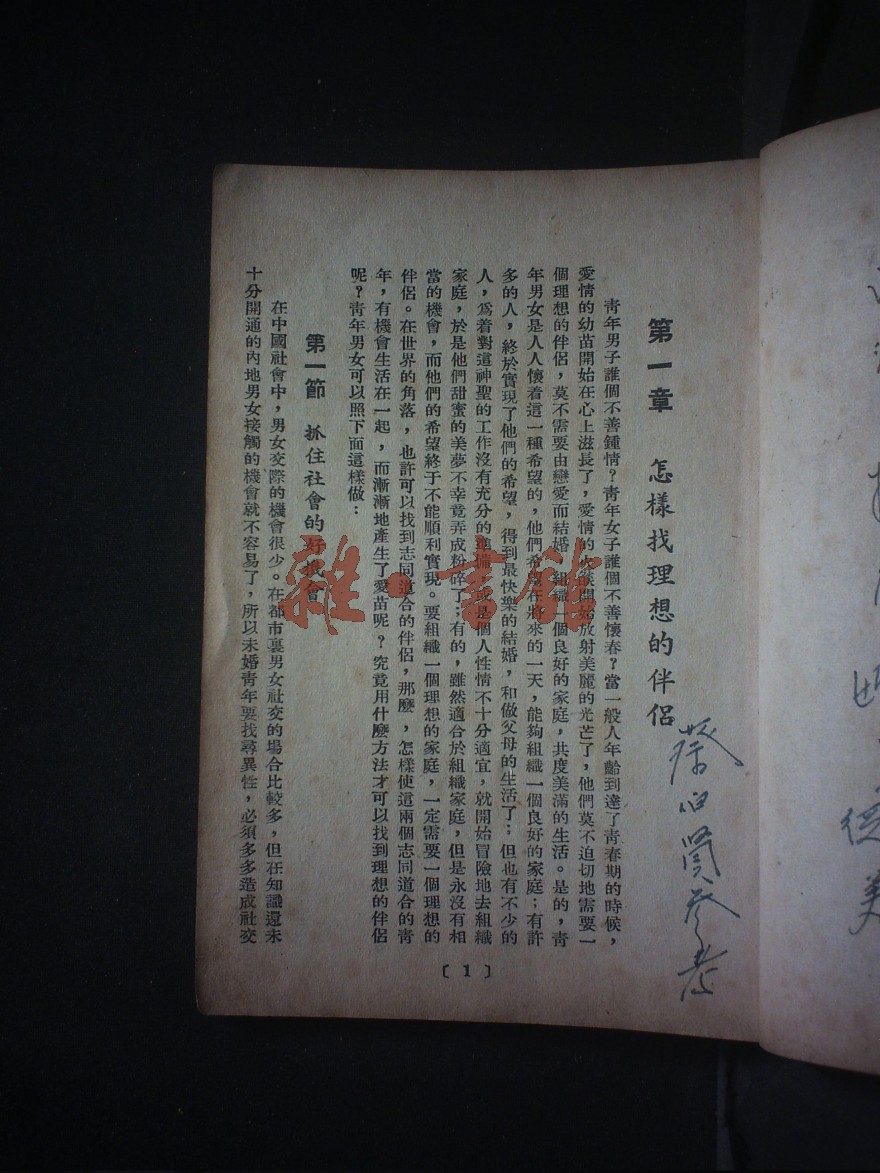 第一章　怎樣找理想的伴侶
青年男子誰個不善鍾情？青年女子誰個不善懷春？當一般人年齡到達了青春期的時候，
愛情的幼苗開始在心上滋長了，愛情的火燄開始放射美麗的光芒了，他們莫不迫切地需要一
個理想的伴侶，莫不需要由戀愛而結婚，組織一個良好的家庭，共度美滿的生活。是的，青
年男女是人人懷着這一種希望的，他們希望在將來的一天，能夠組織一個良好的家庭；有許
多的人，終於實現了他們的希望，得到最快樂的結婚，和做父母的生活了；但也有不少的
人，爲着對這神聖的工作沒有充分的準備，或是個人性情不十分適宜，就開始冒險地去組織
家庭，於是他們甜蜜的美夢不幸竟弄成粉碎了；有的，雖然適合於組織家庭，但是永沒有相
當的機會，而他們的希望終于不能順利實現。要組織一個理想的家庭，一定需要一個理想的
伴侶。在世界的角落，也許可以找到志同道合的伴侶，那麽，怎樣使這兩個志同道合的青
年，有機會生活在一起，而漸漸地產生了愛苗呢？究竟用什麽方法才可以找到理想的伴侶
呢？青年男女可以照下面這樣做：
第一節　抓住社會的好機會
在中國社會中，男女交際的機會很少。在都市裏男女社交的場合比較多，但在知識還未
十分開通的內地男女接觸的機會就不容易了，所以未婚青年要找尋異性，必須多多造成社交
〔1〕
雜·書館